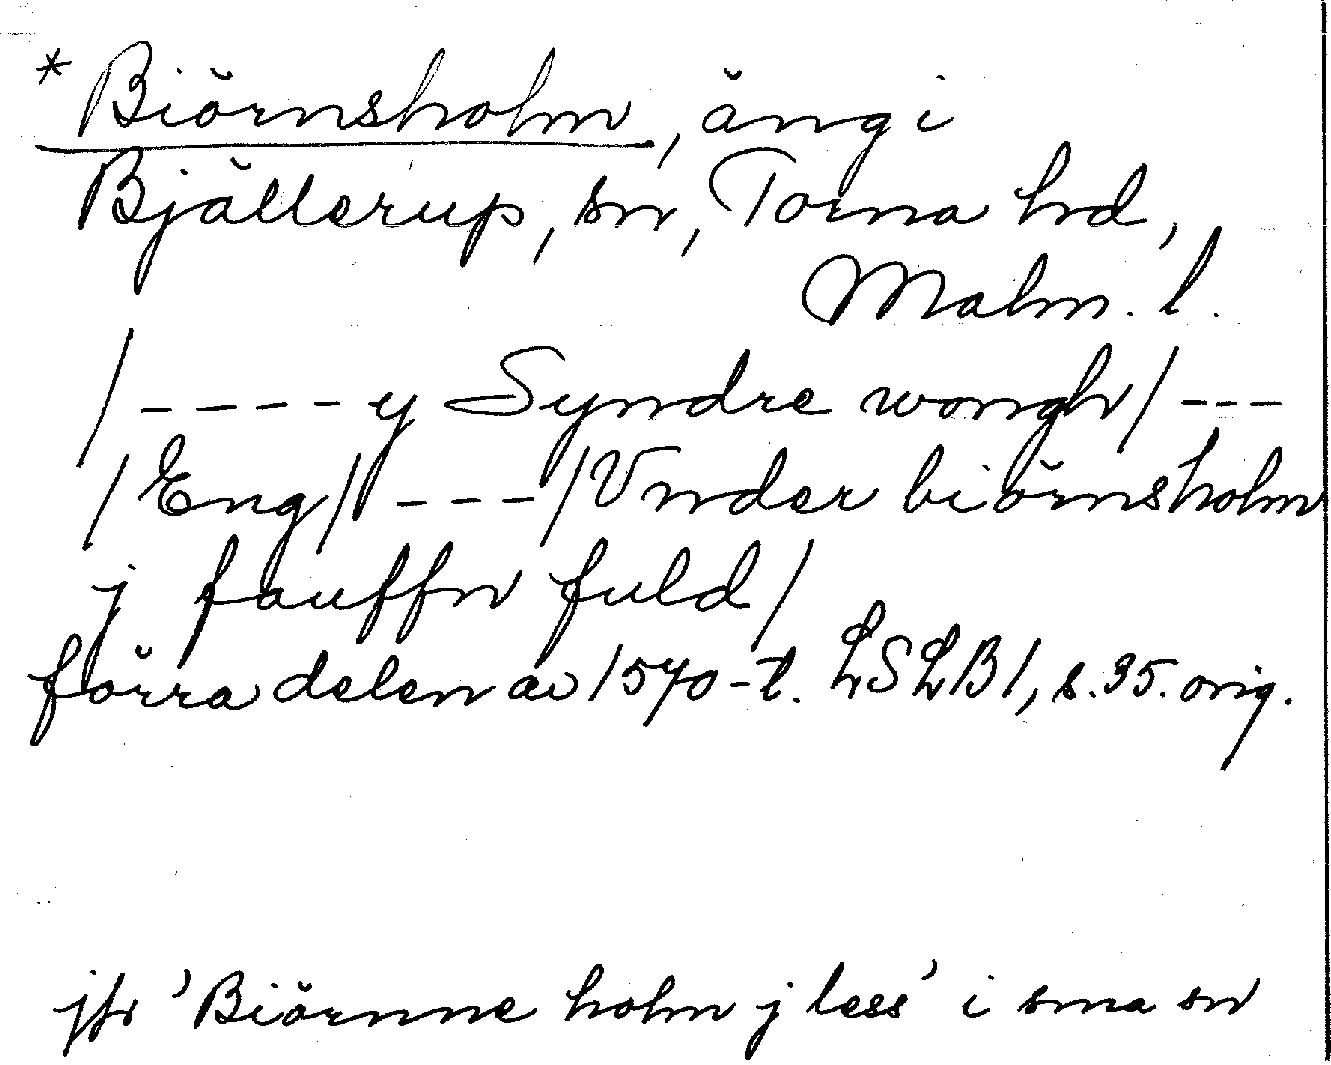 * Biörnsholm, äng i
Bjällerup, sn, Torna hd,
Malm. l.
/----y Syndre wongh/---
/Eng/ ---/Vnder biörnsholm
j fauffn fuld/
förra delen av 1570-t. LSLB1, s.35. orig.
jfr 'Biörnne holm j less' i sma sn